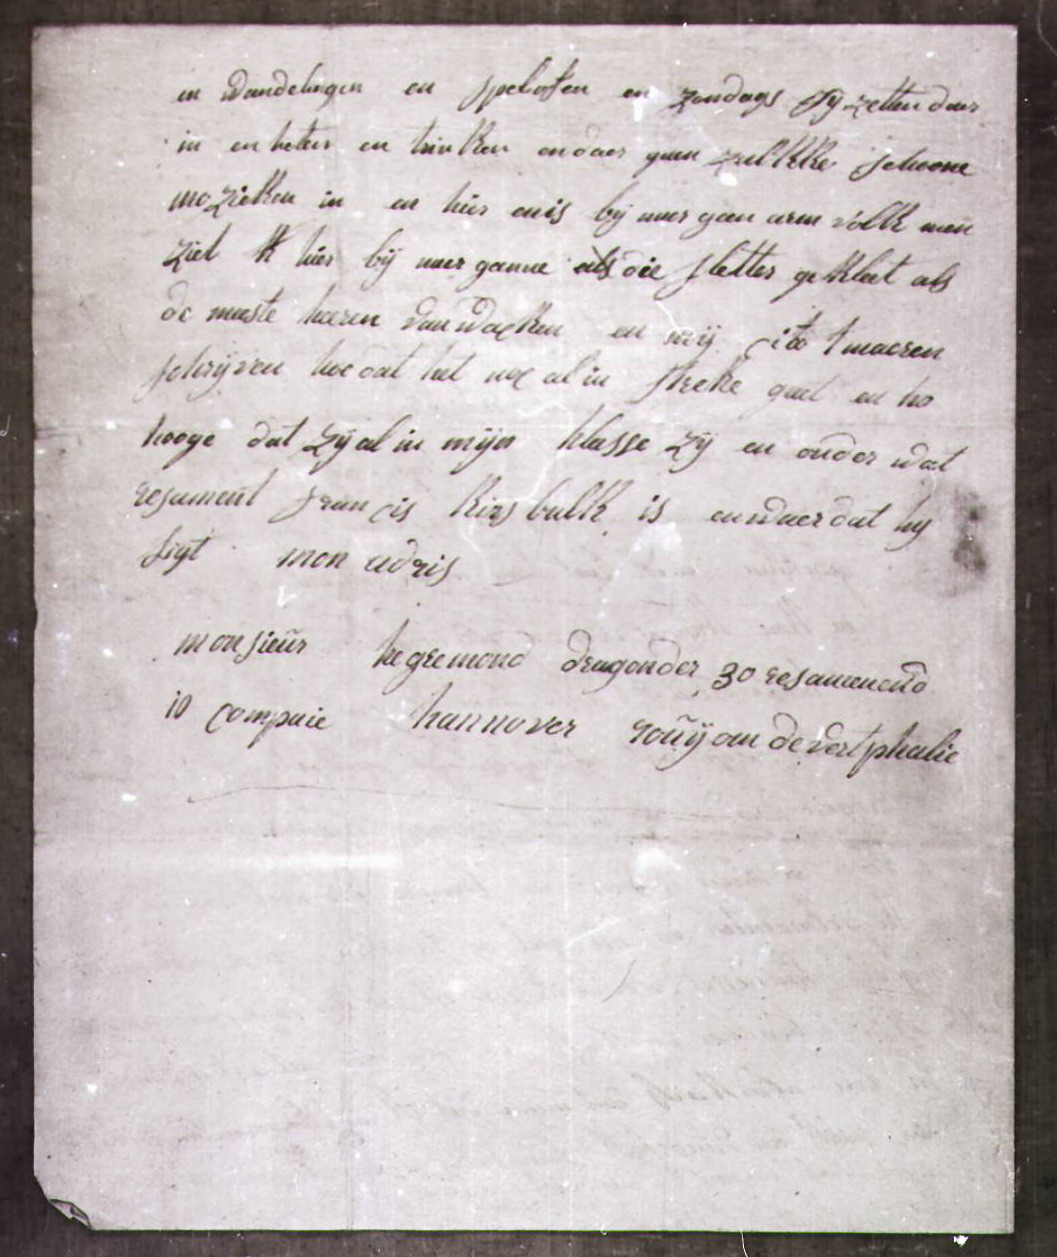 in wandelingen en spelosen en zondags sij zetten daer
in en heten en drinken en daer gaen zulkke schoone
mozieken in en hier en is bij naer geen arm volk men
ziet k hier bij naer ganne als die sletter gekleet als
de meeste heeren van wacken en mij ito t maeren
schrijven hoe dat het noc al in streke gaet en ho
hooge dat zij al in mijn klasse zij en onder wat
resament francis kinsbulk is en waer dat hij
ligt mon adris
monsieur hegremond dragonder 30 resamento
10 compnie hannover roüijom de vertphalie